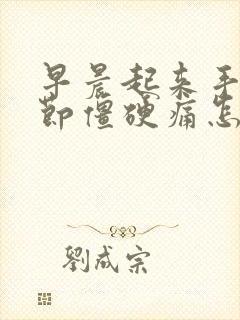 早晨起来手
节僵硬痛怎
劉成宗